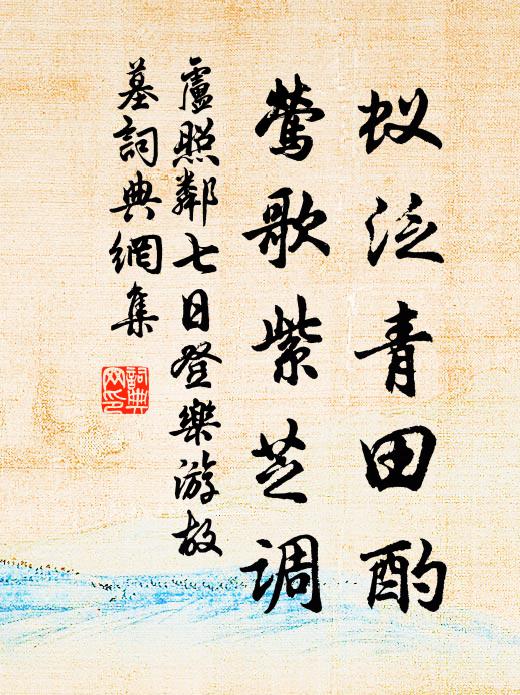 蚁泛青田酌
莺歌紫芝调
盧照鄰七日登樂游故
墓詞典網集
詞典網印